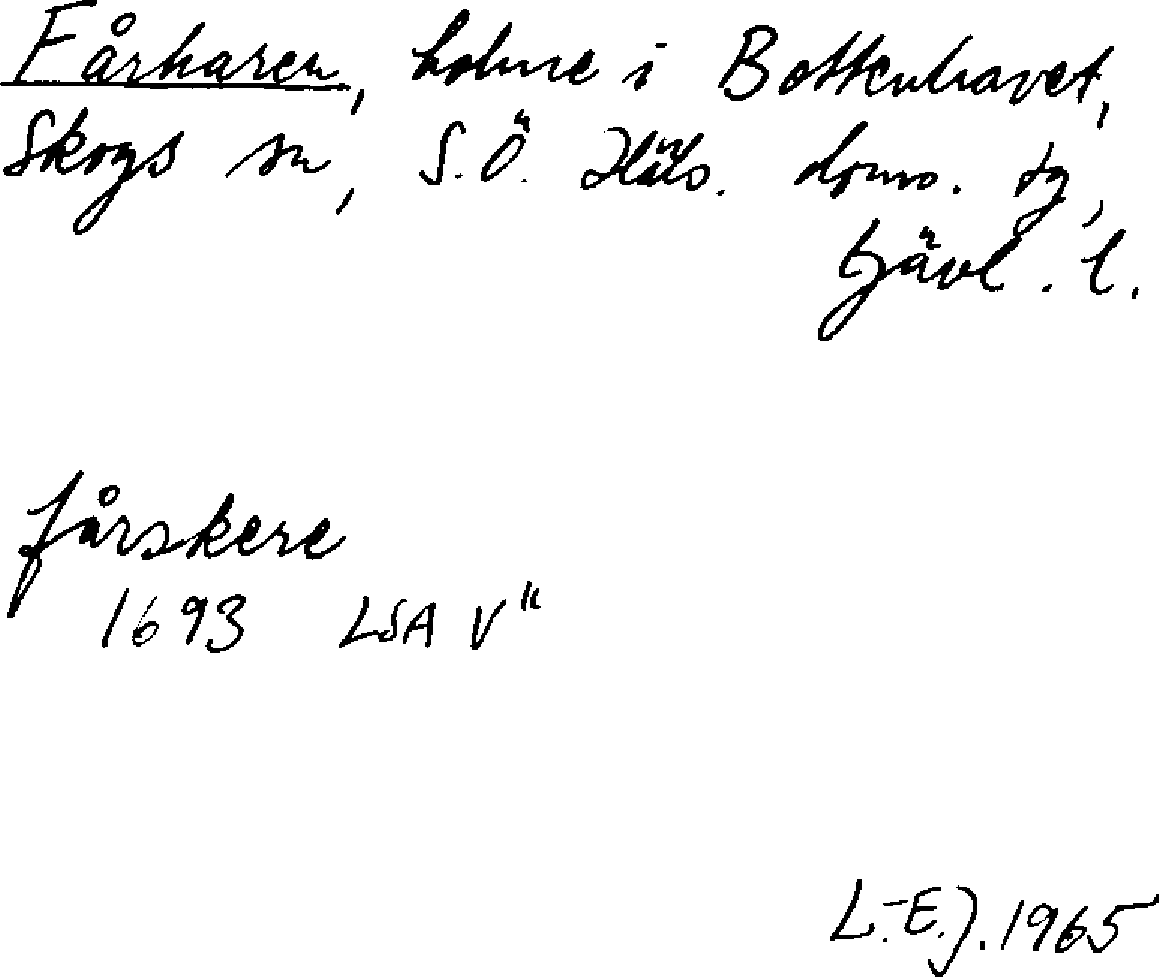 Fårharen, holme i Bottenhavet,
Skogs sn, S.Ö. Häls. doms. tg,
Gävl. l.
fårskere
1693 LSA V"
L.-E.J. 1965